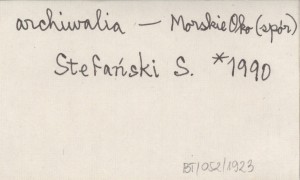 archiwalia — Morskie Oko (spór)
Stefański S. *1990
BT/052/1923